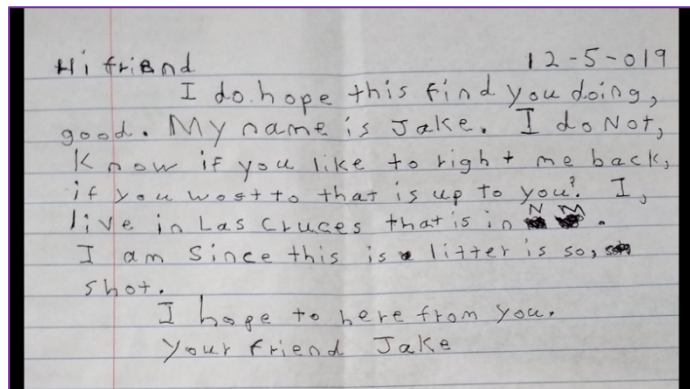 Hi friend 12-5-019
I do hope this find you doing,
good. My name is Jake. I do Not,
Know if you like to right me back,
if you wostto that is up to you? I,
live in Las Cruces that is in N M.
I am Since this is litter is so,
shot.
I hope to here from you.
Your friend Jake